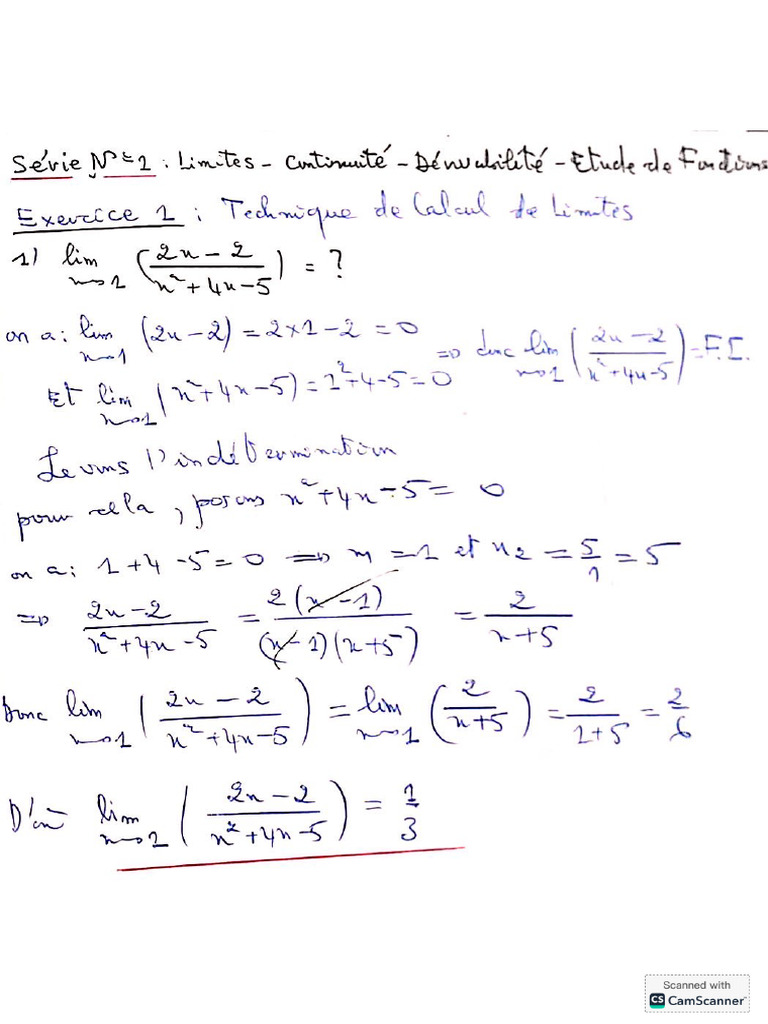 Série N°1 : Limites - Continuité - Dérivabilité - Etude de Fonctions
Exercice 1 : Technique de Calcul de Limites
1) lim x→1 ( (2x - 2) / (x² + 4x - 5) ) = ?
on a : lim x→1 (2x - 2) = 2×1 - 2 = 0
Et lim x→1 (x² + 4x - 5) = 1² + 4 - 5 = 0
⇒ donc lim x→1 ( (2x - 2) / (x² + 4x - 5) ) = F.I.
Levons l'indétermination
pour cela, posons x² + 4x - 5 = 0
on a : 1 + 4 - 5 = 0 ⇒ x1 = 1 et x2 = 5/1 = 5
⇒ (2x - 2) / (x² + 4x - 5) = 2(x - 1) / (x - 1)(x + 5) = 2 / (x + 5)
Donc lim x→1 ( (2x - 2) / (x² + 4x - 5) ) = lim x→1 ( 2 / (x + 5) ) = 2 / (1 + 5) = 2/6
D'où lim x→1 ( (2x - 2) / (x² + 4x - 5) ) = 1/3
Scanned with
CS CamScanner